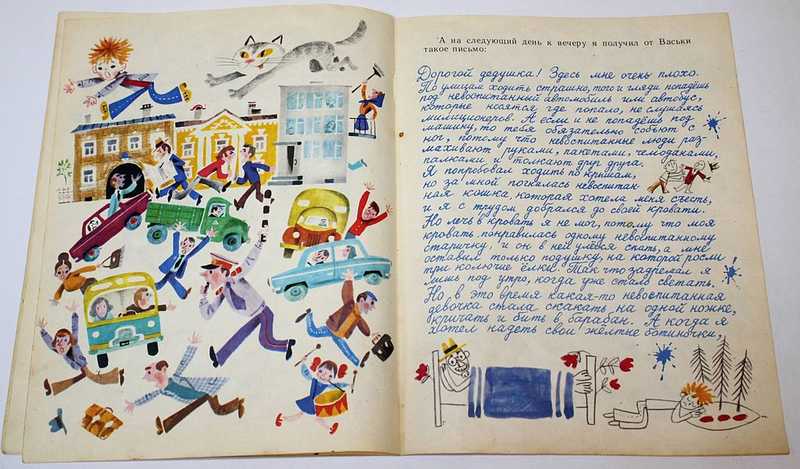 А на следующий день к вечеру я получил от Васьки
такое письмо:
Дорогой дедушка! Здесь мне очень плохо.
По улицам ходить страшно, того и гляди попадёшь
под невоспитанный автомобиль или автобус,
которые носятся где попало, не слушаясь
милиционеров. А если и не попадёшь под
машину, то тебя обязательно собьют с
ног, потому что невоспитанные люди раз-
махивают руками, пакетами, чемоданами,
палками и толкают друг друга.
Я попробовал ходить по крышам,
но за мной погналась невоспитан
ная кошка, которая хотела меня съесть,
и я с трудом добрался до своей кровати.
Но лечь в кровать я не мог, потому что моя
кровать понравилась одному невоспитанному
старичку, и он в ней улёгся спать, а мне
оставил только подушку, на которой росли
три колючие ёлки. Так что задремал я
лишь под утро, когда уже стало светать.
Но, в это время какая-то невоспитанная
девочка стала скакать на одной ножке,
кричать и бить в барабан. А когда я
хотел надеть свои жёлтые ботиночки,